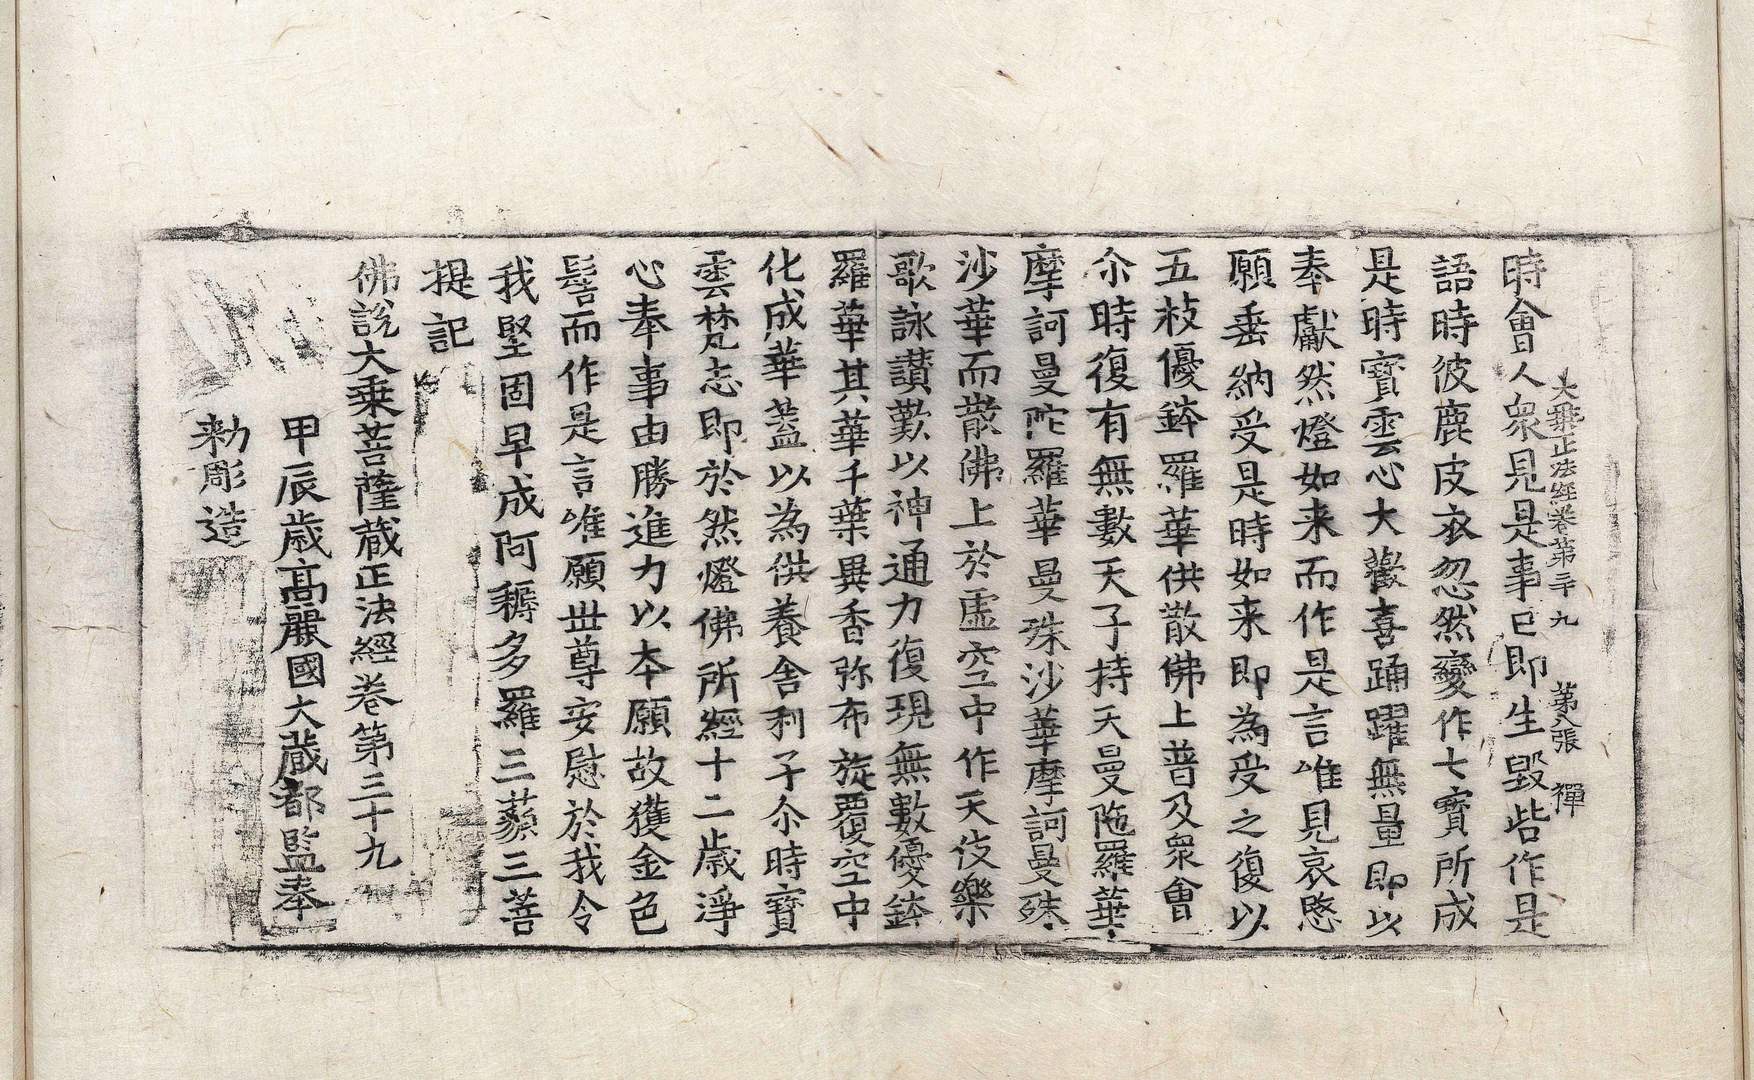 大乘正法經卷第三十九　第八張　禪
時會人衆見是事已即生毀呰作是
語時彼鹿皮衣忽然變作七寶所成
是時寶雲心大歡喜踊躍無量即以
奉獻然燈如来而作是言唯見哀愍
願垂納受是時如来即為受之復以
五枝優鉢羅華供散佛上普及衆會
尒時復有無數天子持天曼陁羅華
摩訶曼陀羅華曼殊沙華摩訶曼殊
沙華而散佛上於虛空中作天伎樂
歌詠讃歎以神通力復現無數優鉢
羅華其華千葉異香弥布旋覆空中
化成華蓋以為供養舍利子尒時寶
雲梵志即於然燈佛所經十二歲淨
心奉事由勝進力以本願故獲金色
髻而作是言唯願世尊安慰於我令
我堅固早成阿耨多羅三藐三菩
提記
佛說大乘菩薩蔵正法經卷第三十九
甲辰歲高麗國大蔵都監奉
勅彫造